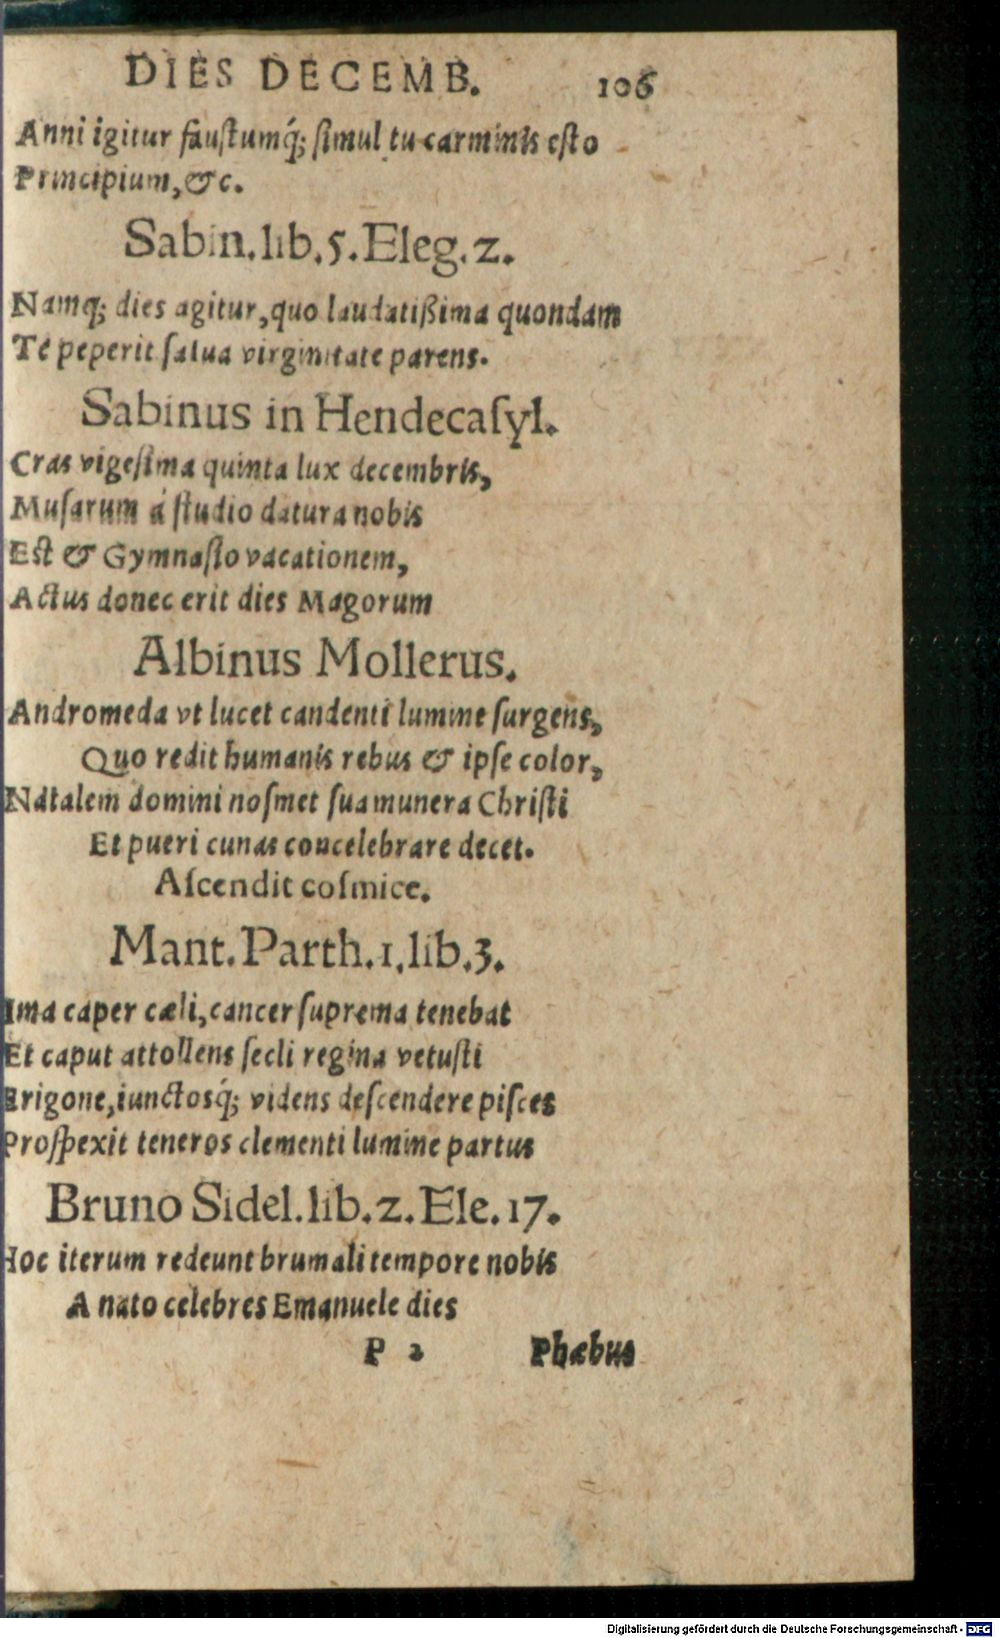 DIES DECEMB. 106
Anni igitur fauſtumq́; ſimul tu carminis eſto
Principium, &c.
Sabin. lib. 5. Eleg. 2.
Namq; dies agitur, quo laudatißima quondam
Te peperit ſalua virginitate parens.
Sabinus in Hendecaſyl.
Cras vigeſima quinta lux decembris,
Muſarum á ſtudio datura nobis
Eſt & Gymnaſio vacationem,
Actus donec erit dies Magorum
Albinus Mollerus.
Andromeda vt lucet candenti lumine ſurgens,
Quo redit humanis rebus & ipſe color,
Natalem domini noſmet ſua munera Chriſti
Et pueri cunas concelebrare decet.
Aſcendit coſmice.
Mant. Parth. 1. lib. 3.
Ima caper cæli, cancer ſuprema tenebat
Et caput attollens ſecli regina vetuſti
Erigone, iunctosq́; videns deſcendere piſces
Proſpexit teneros clementi lumine partus
Bruno Sidel. lib. 2. Ele. 17.
Hoc iterum redeunt brumali tempore nobis
A nato celebres Emanuele dies
P 2 Phæbus
Digitalisierung gefördert durch die Deutsche Forschungsgemeinschaft - DFG